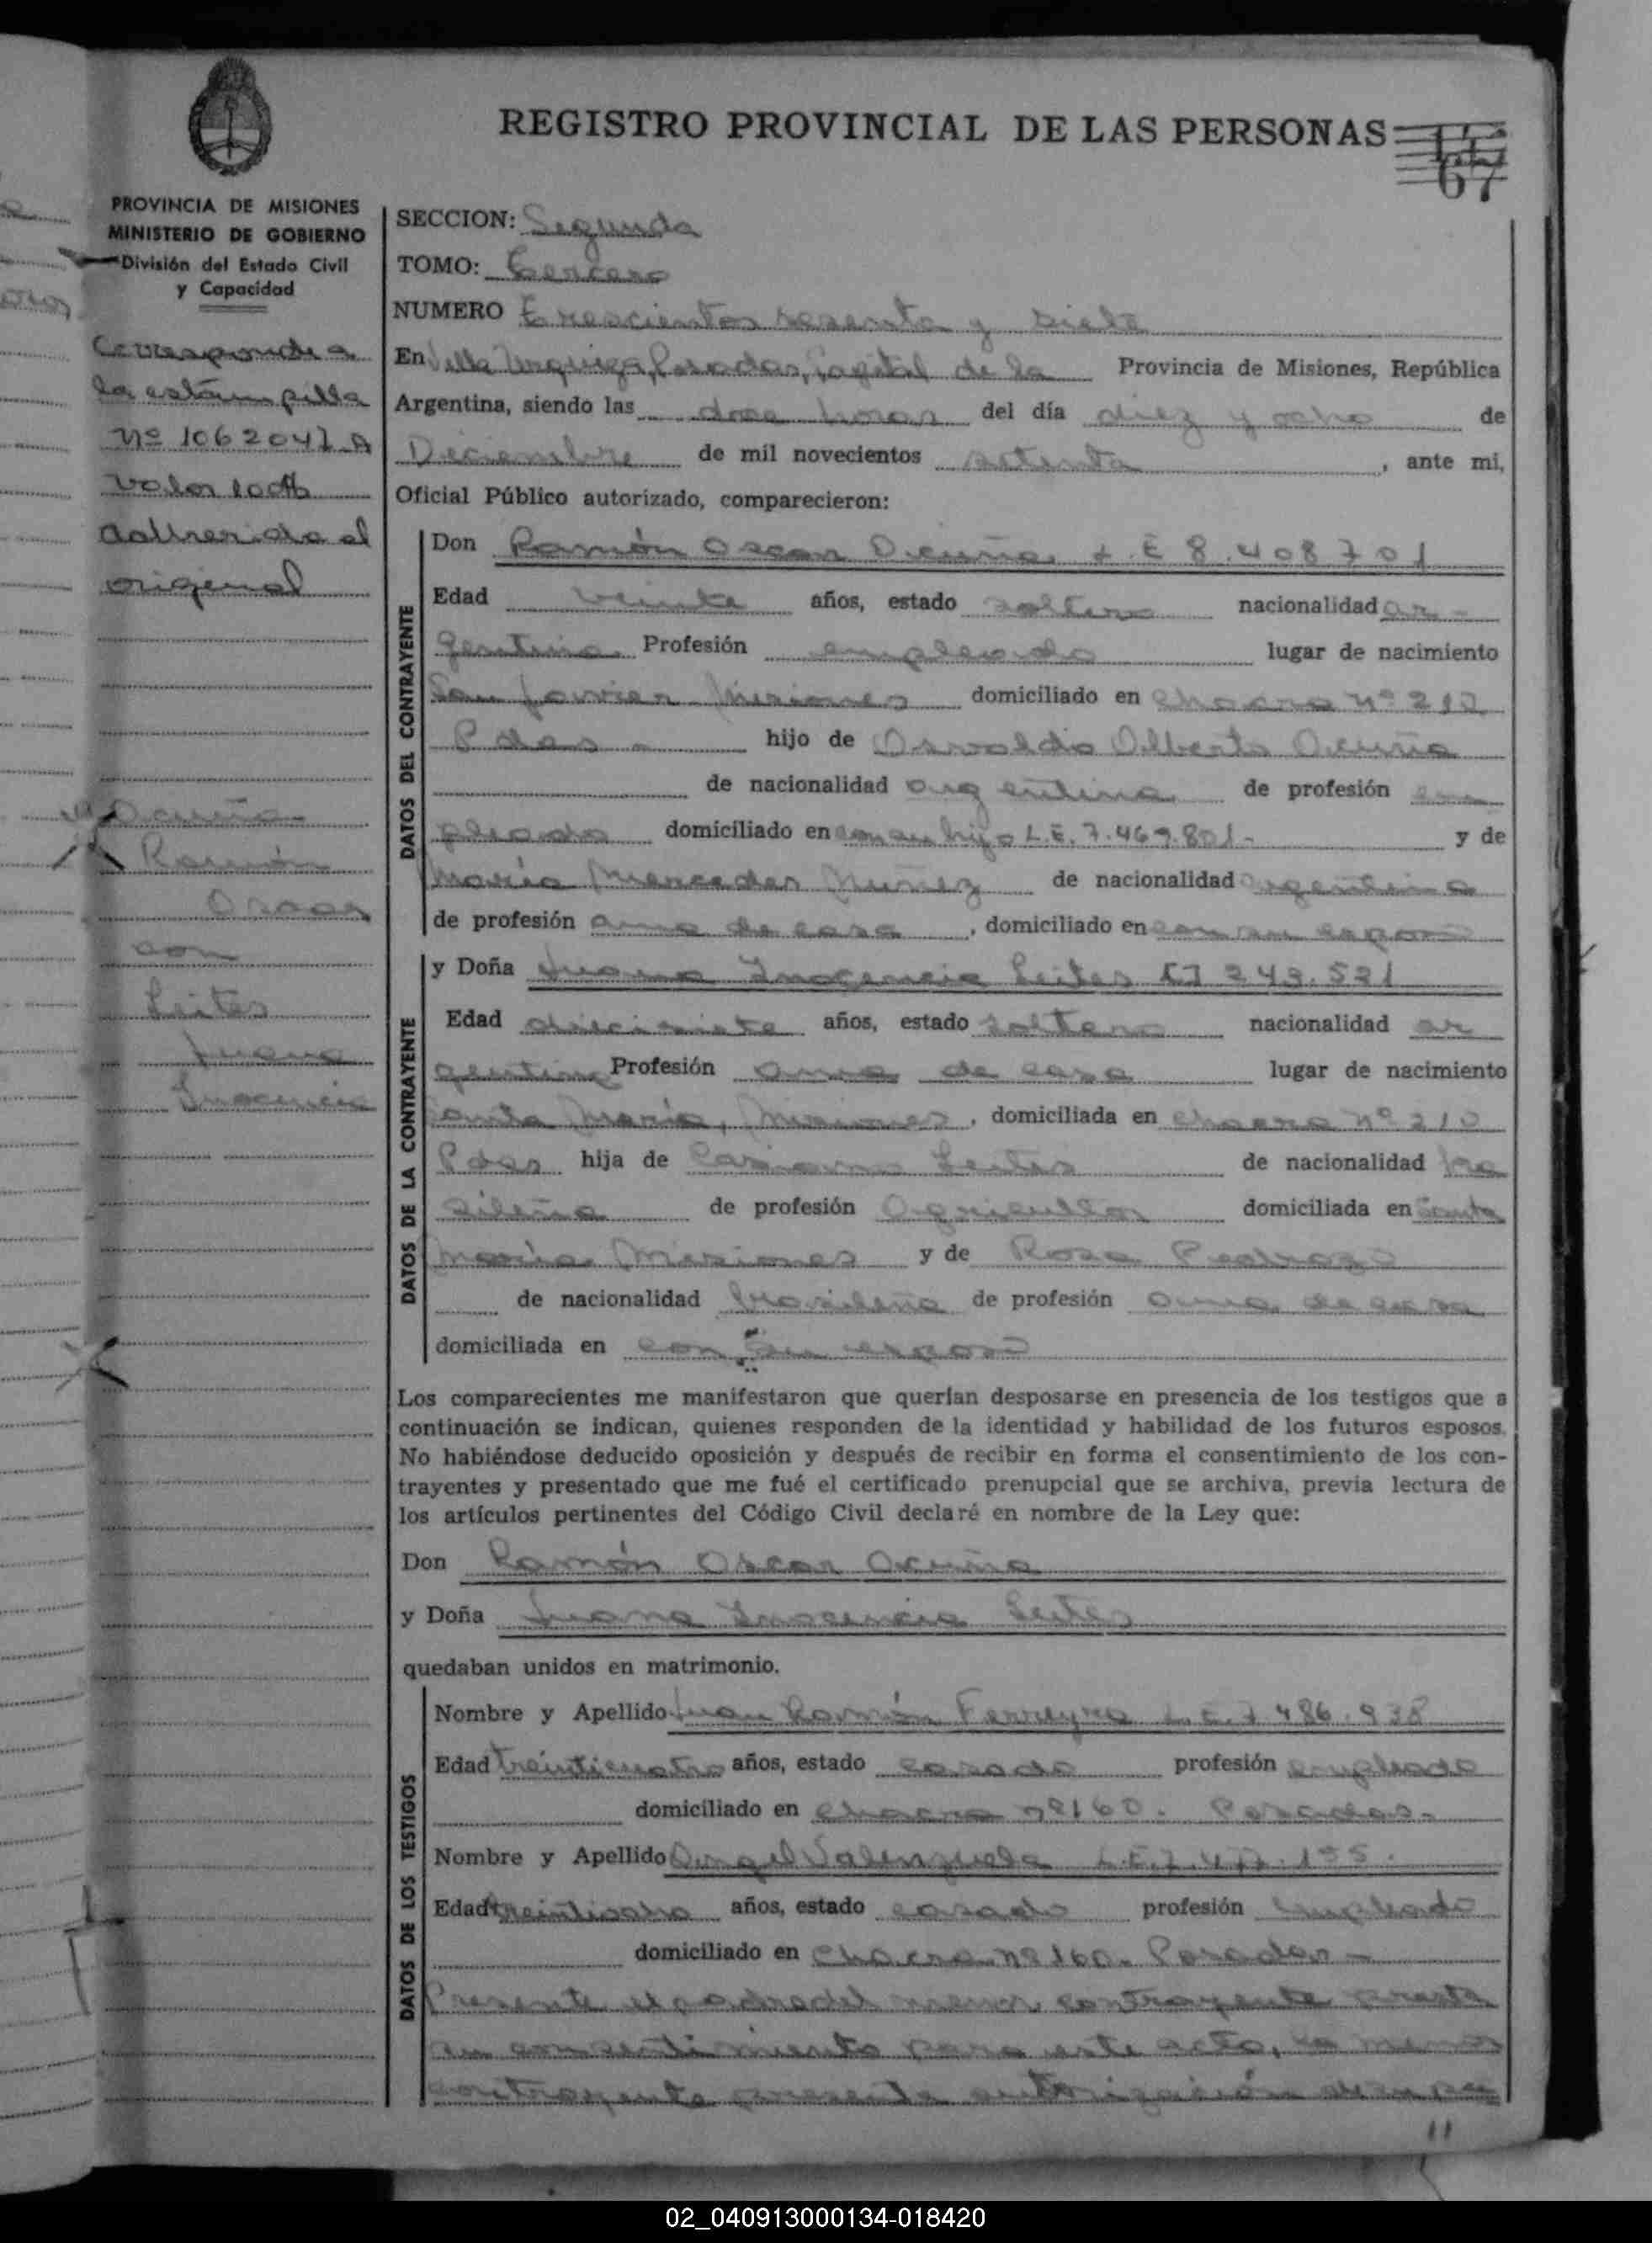 REGISTRO PROVINCIAL DE LAS PERSONAS
67
PROVINCIA DE MISIONES
MINISTERIO DE GOBIERNO
División del Estado Civil
y Capacidad
Corresponde a
la estampilla
Nº 1062041 A
Valor 100
adherida al
original
Acuña
Ramón
Oscar
con
Leites
Juana
Inocencia
SECCION: Segunda
TOMO: Tercero
NUMERO Trescientos sesenta y siete
En Villa Urquiza, Posadas, Capital de la Provincia de Misiones, República
Argentina, siendo las doce horas del día diez y ocho de
Diciembre de mil novecientos setenta, ante mi,
Oficial Público autorizado, comparecieron:
DATOS DEL CONTRAYENTE
Don Ramón Oscar Acuña L.E 8.408701
Edad veinte años, estado soltero nacionalidad ar-
gentina Profesión empleado lugar de nacimiento
San Javier Misiones domiciliado en chacra Nº 210
Pdas - hijo de Osvaldo Alberto Acuña
de nacionalidad argentina de profesión em
pleado domiciliado en con su hijo L.E. 7.469.801- y de
María Mercedes Nuñez de nacionalidad argentina
de profesión ama de casa, domiciliado en con su esposo
DATOS DE LA CONTRAYENTE
y Doña Juana Inocencia Leites CI 243.521
Edad diecisiete años, estado soltera nacionalidad ar
gentina Profesión ama de casa lugar de nacimiento
Santa María, Misiones, domiciliada en chacra Nº 210
Pdas hija de Leites de nacionalidad bra
sileña de profesión Agricultor domiciliada en Santa
María Misiones y de Rosa Pedrozo
de nacionalidad brasileña de profesión ama de casa
domiciliada en con su esposo
Los comparecientes me manifestaron que querían desposarse en presencia de los testigos que a
continuación se indican, quienes responden de la identidad y habilidad de los futuros esposos.
No habiéndose deducido oposición y después de recibir en forma el consentimiento de los con-
trayentes y presentado que me fué el certificado prenupcial que se archiva, previa lectura de
los artículos pertinentes del Código Civil declaré en nombre de la Ley que:
Don Ramón Oscar Acuña
y Doña Juana Inocencia Leites
quedaban unidos en matrimonio.
DATOS DE LOS TESTIGOS
Nombre y Apellido Juan Ramón Ferreyra L.E.7 486.938
Edad treinticuatro años, estado casado profesión empleado
domiciliado en chacra nº 160. Posadas-
Nombre y Apellido Angel Valenzuela L.E.
Edad treintiocho años, estado casado profesión empleado
domiciliado en chacra nº 160- Posadas-
Presente el padre del menor contrayente presta
su consentimiento para este acto, la menor
contrayente presenta autorización de su pa
02_040913000134-018420